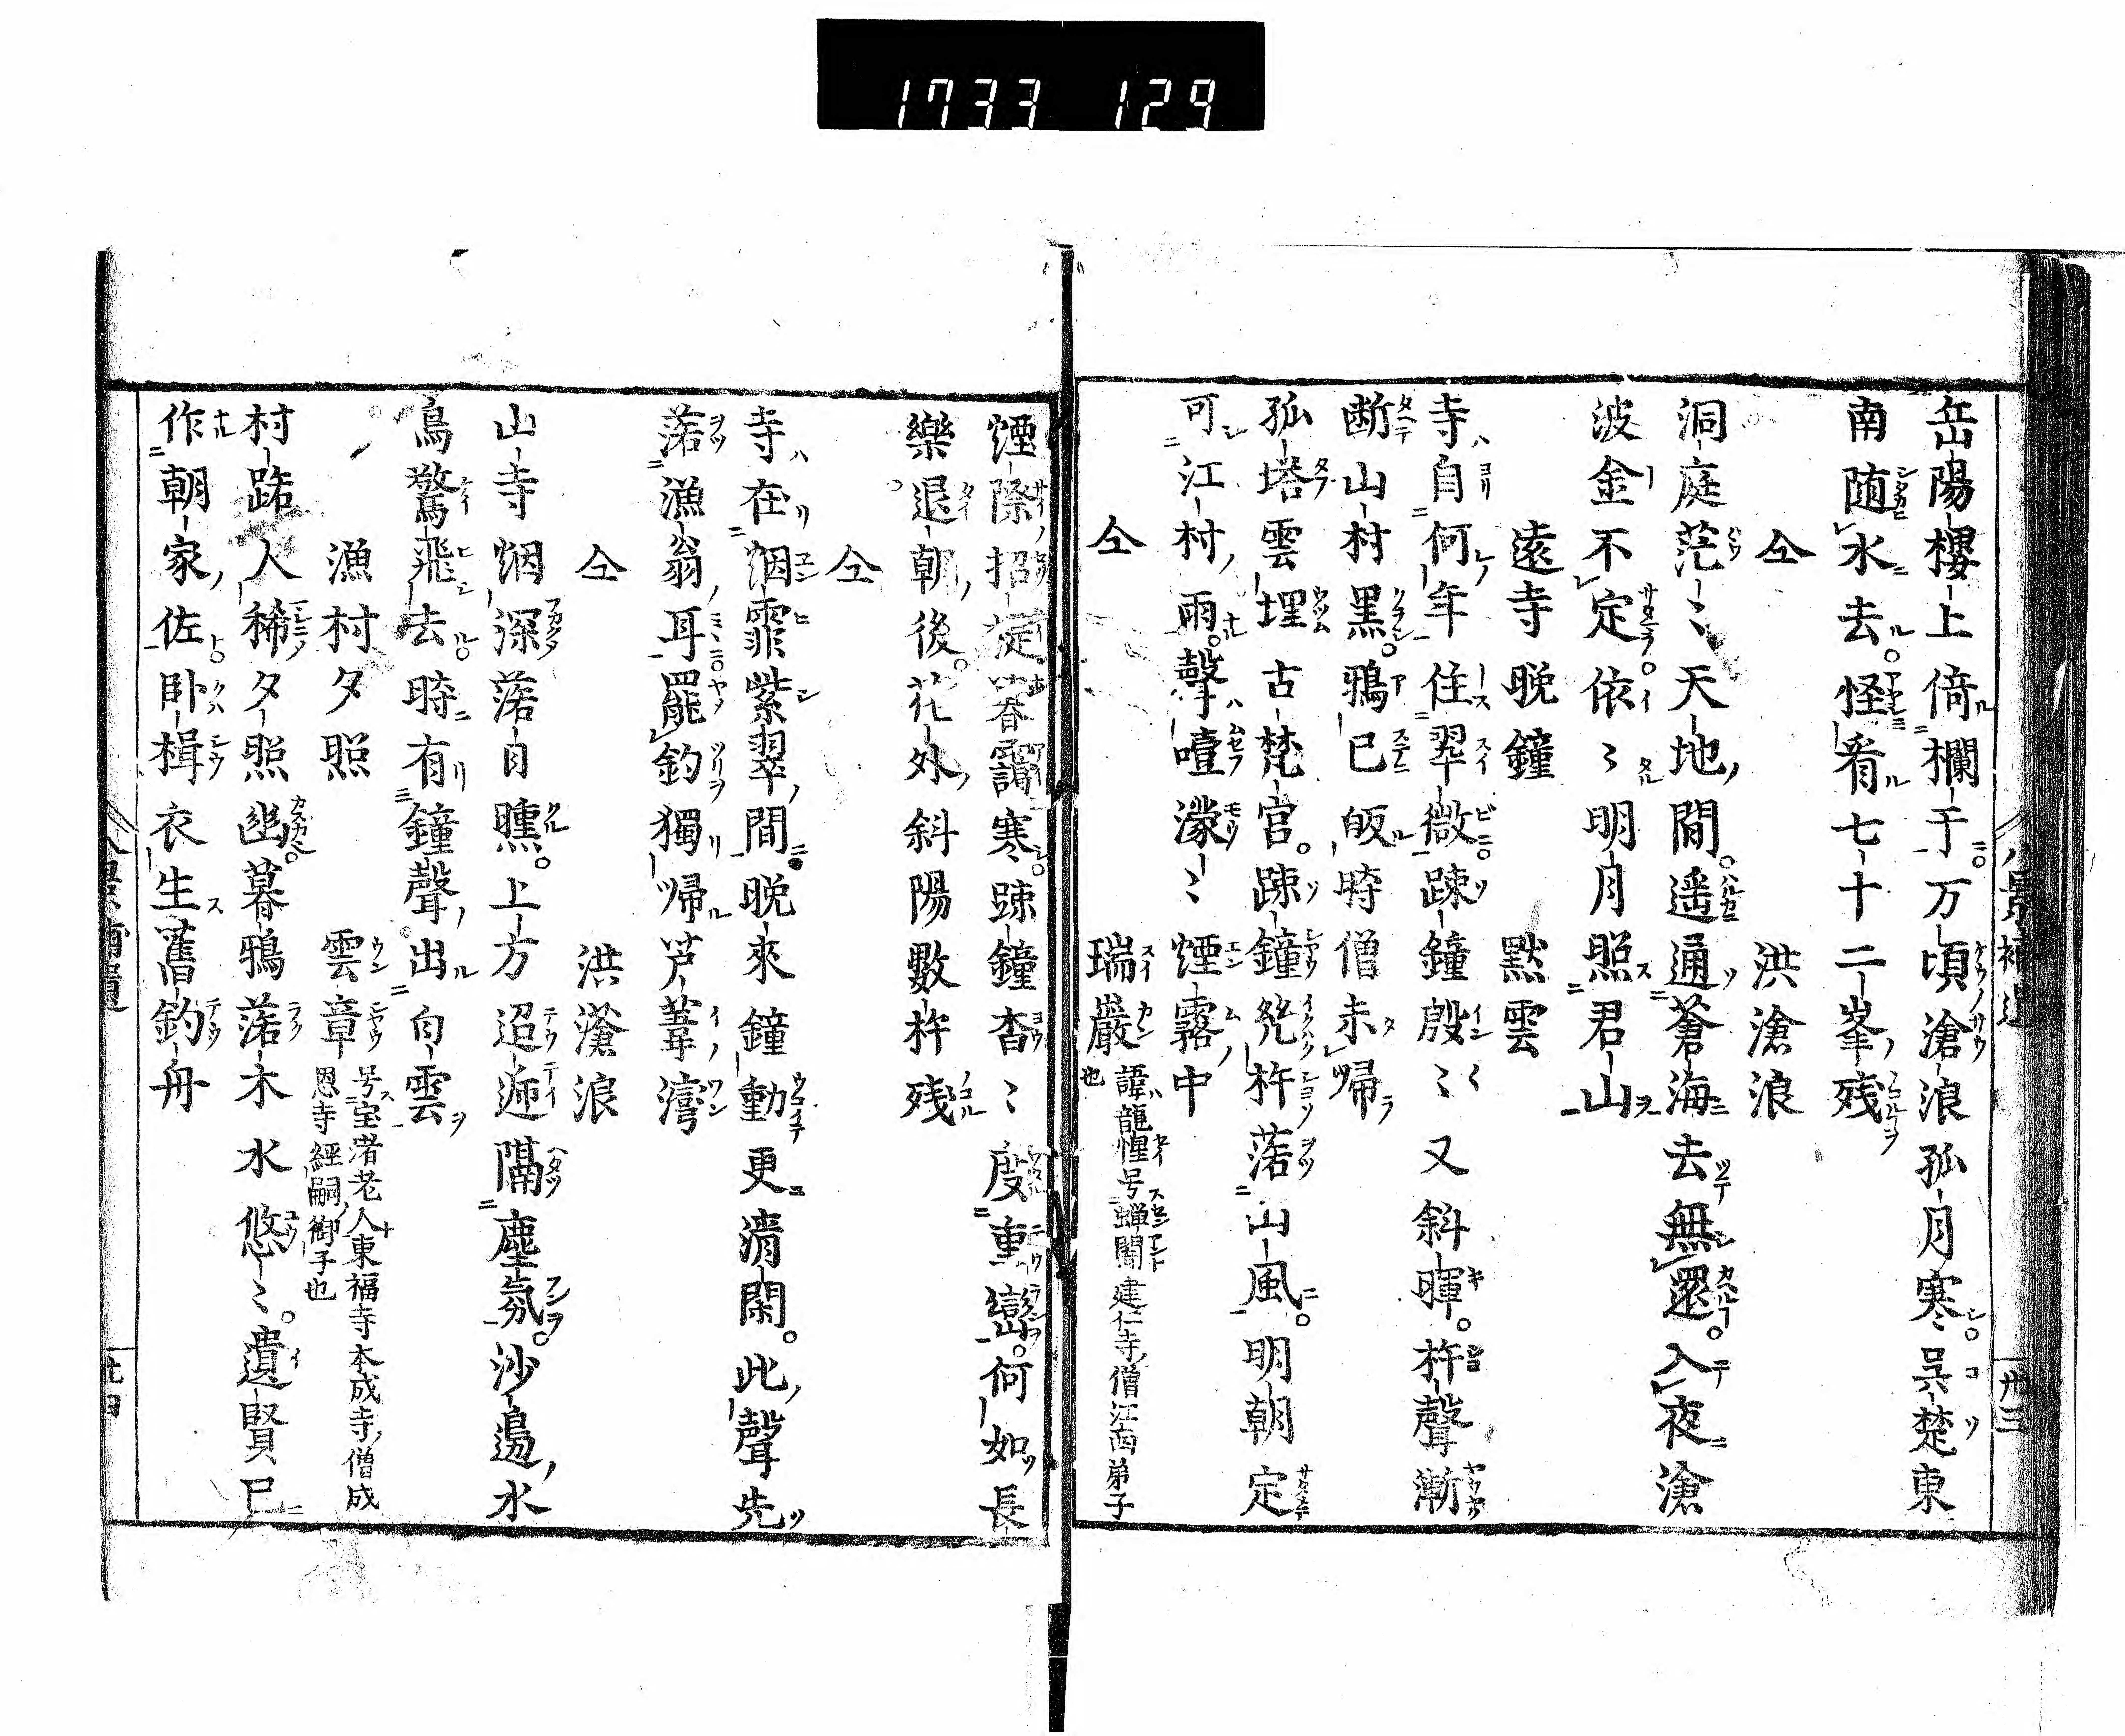 1733 129
八景補遺 卅三
岳陽樓上倚欄干万頃滄浪孤月寒呉楚東
南随水去怪看七十二峯残
仝 洪滄浪
洞庭茫〻天地間遥通蒼海去無還入夜滄
波金不定依〻明月照君山
遠寺晩鐘 黙雲
寺自何年住翠微踈鐘殷〻又斜暉杵聲漸
断山村黒鴉已皈時僧未帰
孤塔雲埋古梵宮踈鐘幾杵落山風明朝定
可江村雨聲噎濛〻煙靄中
仝 瑞巖 諱龍惺号蝉闇建仁寺僧江西弟子
也
煙際招提暮靄寒踈鐘杳〻度重巒何如長
樂退朝後花外斜陽數杵残
仝
寺在烟霏紫翠間晩來鐘動更清閑此聲先
落漁翁耳罷釣獨帰芦葦湾
仝 洪滄浪
山寺烟深落自曛上方迢遰隔塵氛沙邉水
鳥驚飛去時有鐘聲出白雲
漁村夕照 雲章 号宝渚老人東福寺本成寺僧成
恩寺經嗣御子也
村路人稀夕照幽暮鴉落木水悠〻遺賢已
作朝家佐卧楫衣生舊釣舟
八景補遺 卅四